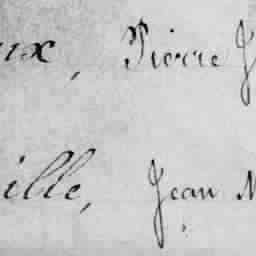 ux, Pierre J
ille, Jean M